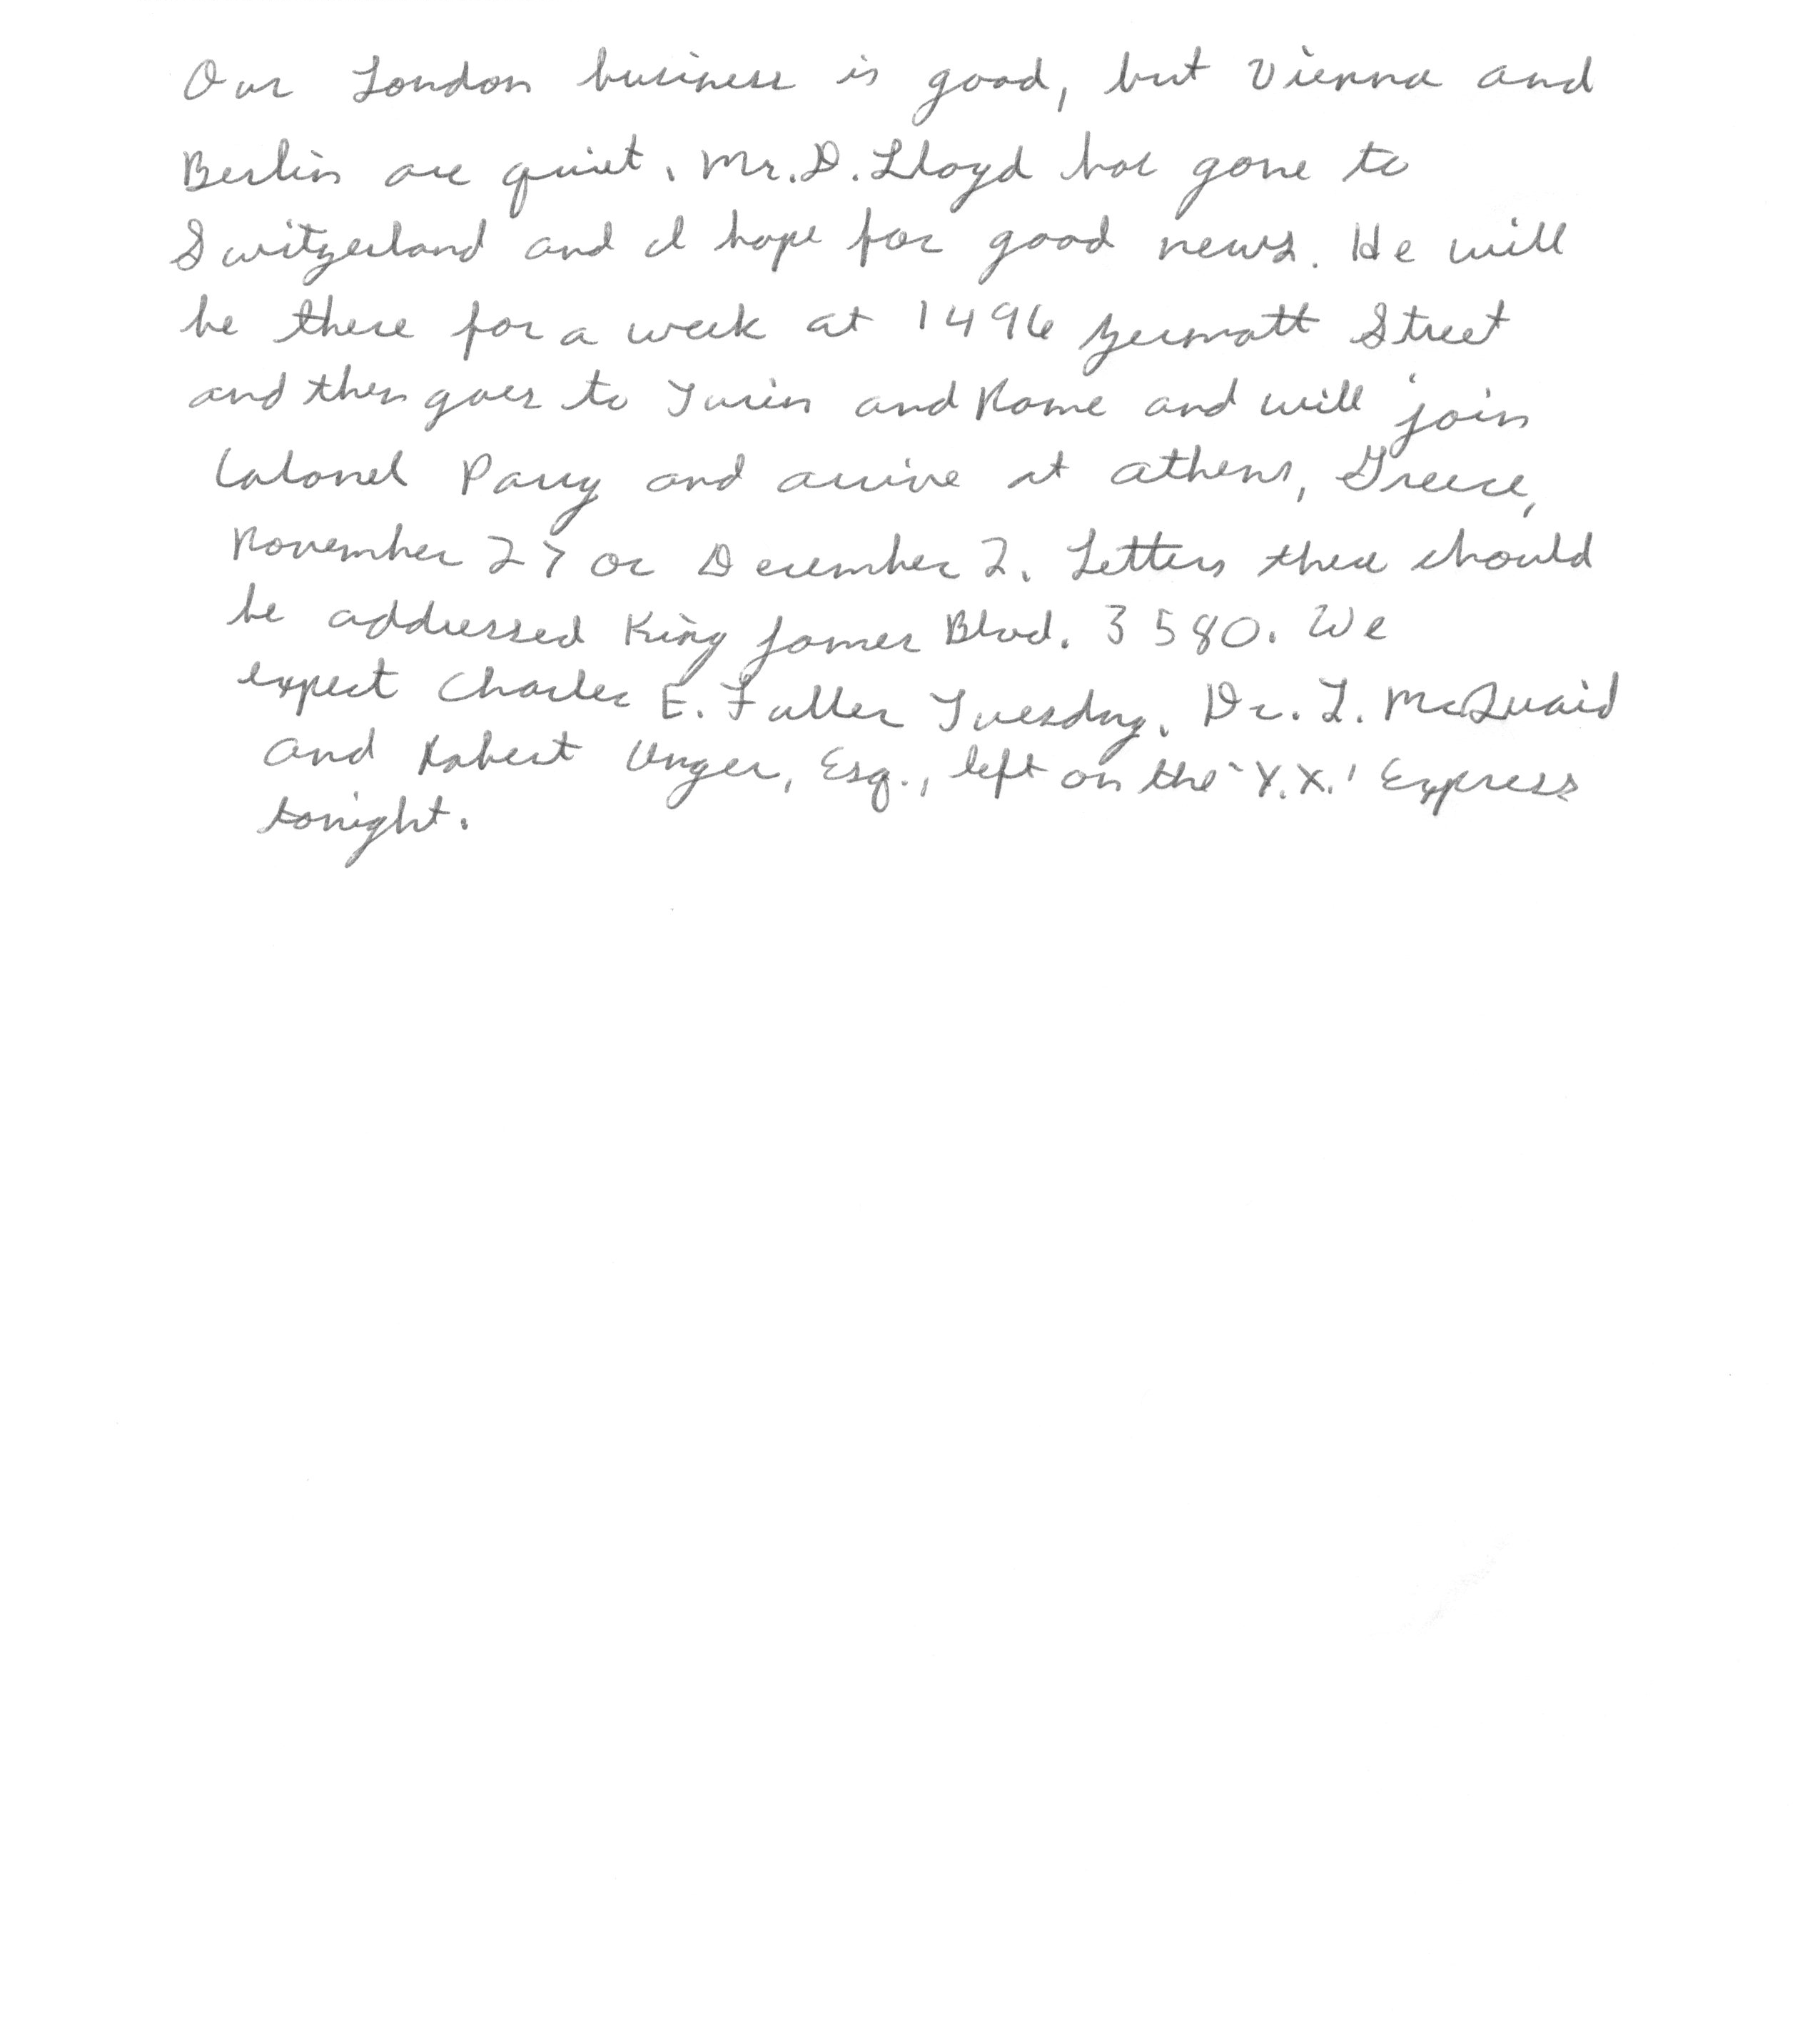 Our London business is good, but Vienna and
Berlin are quiet. Mr. D. Lloyd has gone to
Switzerland and I hope for good news. He will
be there for a week at 1496 Zermatt Street
and then goes to Turin and Rome and will join
Colonel Parry and arrive at Athens, Greece,
November 27 or December 2. Letters there should
be addressed King James Blvd. 3580. We
expect Charles E. Fuller Tuesday. Dr. L. McQuaid
and Robert Unger, Esq., left on the 'Y.X.' Express
tonight.